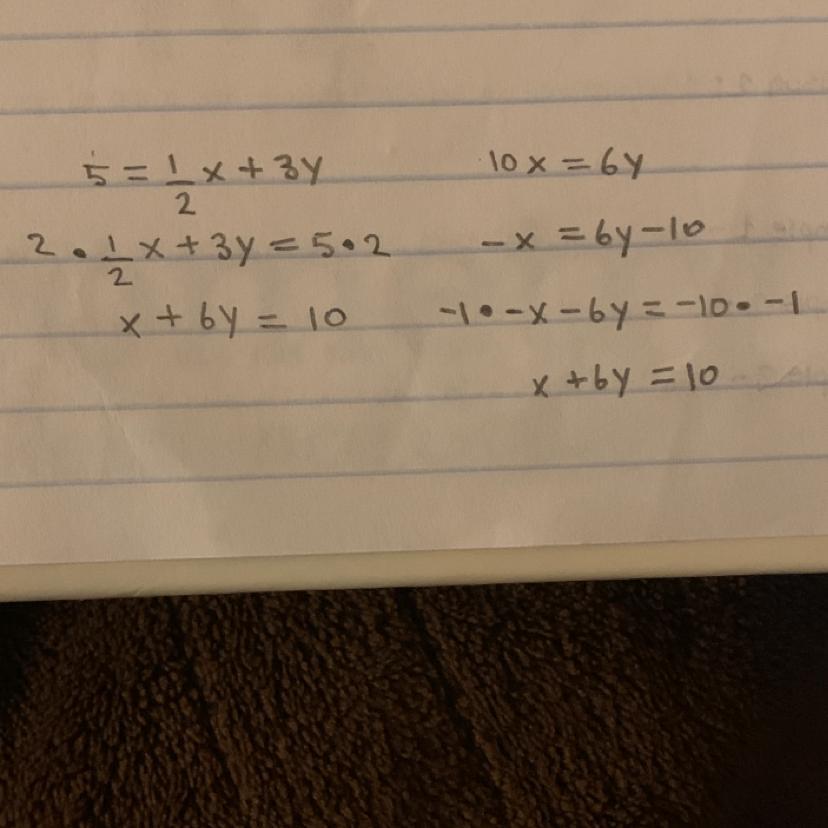 5 = 1/2 x + 3y
2 • 1/2 x + 3y = 5 • 2
x + 6y = 10
10x = 6y
-x = 6y - 10
-1 • -x - 6y = -10 • -1
x + 6y = 10